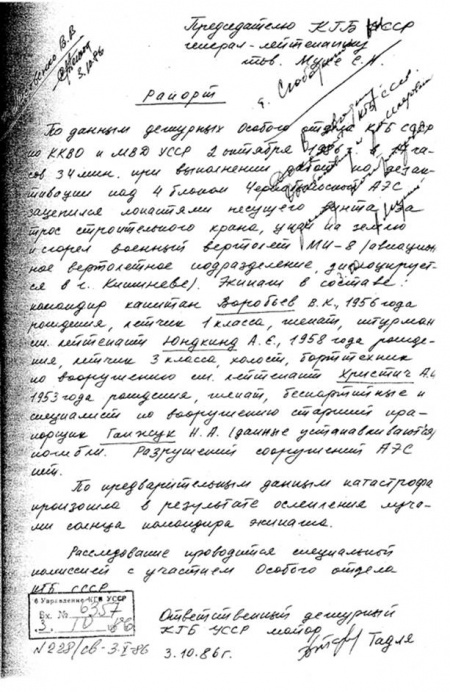 Председателю КГБ УССР
генерал-лейтенанту
тов. Мухе С.Н.
3.10.86
Рапорт
По данным дежурных Особого отдела КГБ СССР
по ККВО и МВД УССР 2 октября 1986 г. в
сах 34 мин. при выполнении работ по дезак-
тивации над 4 блоком Чернобыльской АЭС
зацепился лопастями несущего винта за
трос строительного крана, упал на землю
и сгорел военный вертолет МИ-8 (авиацион-
ное вертолетное подразделение, дислоцирует-
ся в г. Кишиневе). Экипаж в составе:
командир капитан Воробьев В.К., 1956 года
рождения, летчик 1 класса, женат, штурман
ст. лейтенант Юнгкинд А.Е., 1958 года рожде-
ния, летчик 3 класса, холост, бортехник
по вооружению ст. лейтенант Христич А.
1953 года рождения, женат, беспартийные и
специалист по вооружению старший пра-
порщик Ганжук Н.А. (данные устанавливаются)
погибли. Разрушений сооружений АЭС
нет.
По предварительным данным катастрофа
произошла в результате ослепления луча-
ми солнца командира экипажа.
Расследование проводится специальной
комиссией с участием Особого отдела
КГБ СССР.
6 Управление КГБ УССР
Вх. № 6357
3. 10 86
Ответственный дежурный
КГБ УССР майор
Тадля
3.10.86г.